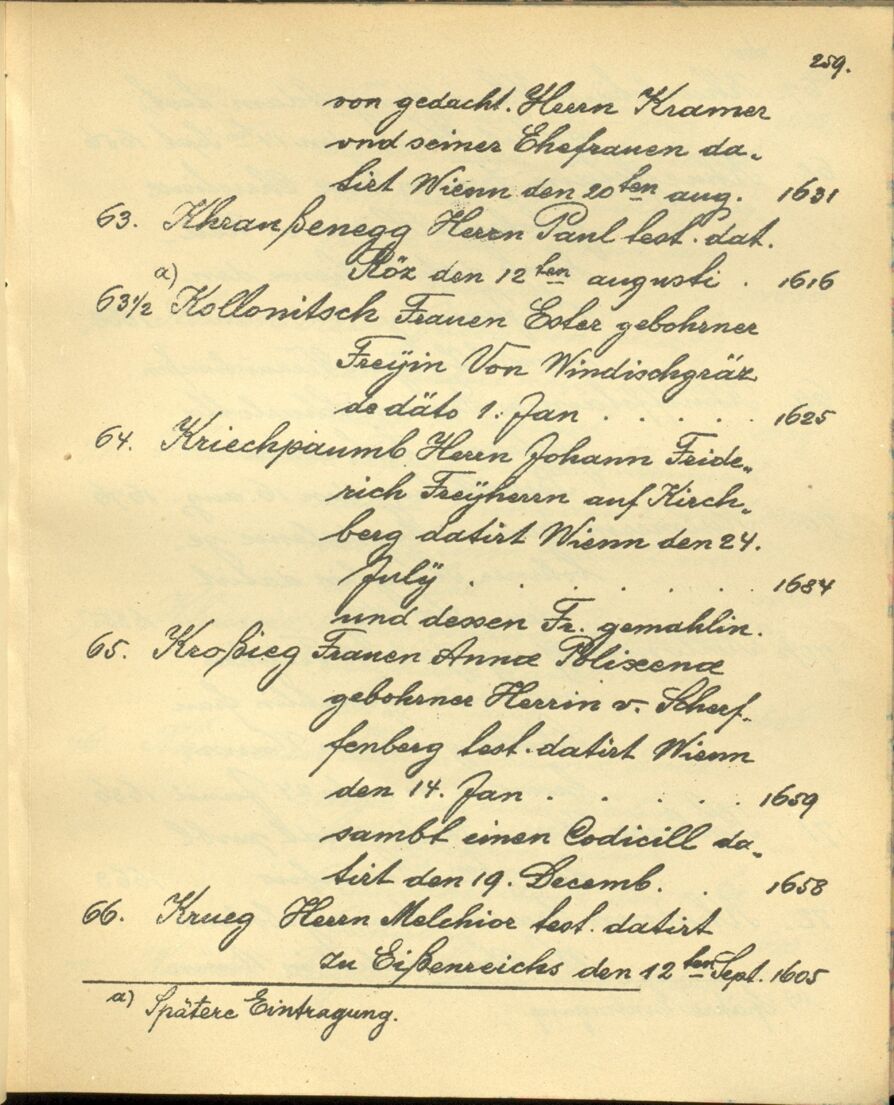 259.
von gedacht. Herrn Kramer
vnd seiner Ehefrauen da„
tirt Wienn den 20ten aug. 1631
63. Khraußenegg Herrn Paul test. dat.
Röz den 12ten augusti . 1616
63½ a) Kollonitsch Frauen Ester gebohrner
Freÿin Von Windischgräz
de däto 1. Jan . . . . . 1625
64. Kriechpaumb Herrn Johann Fride„
rich Freÿherrn auf Kirch„
berg datirt Wienn den 24.
Julÿ . . . . . . 1684
und dessen Fr. gemahlin.
65. Kroßieg Frauen Anna Polixena
gebohrner Herrin v. Scherf„
fenberg test. datirt Wienn
den 14. Jan . . . . . 1659
sambt einen Codicill da„
tirt den 19. Decemb. . 1658
66. Krueg Herrn Melchior test. datirt
zu Eißenreichs den 12ten Sept. 1605
a) Spätere Eintragung.